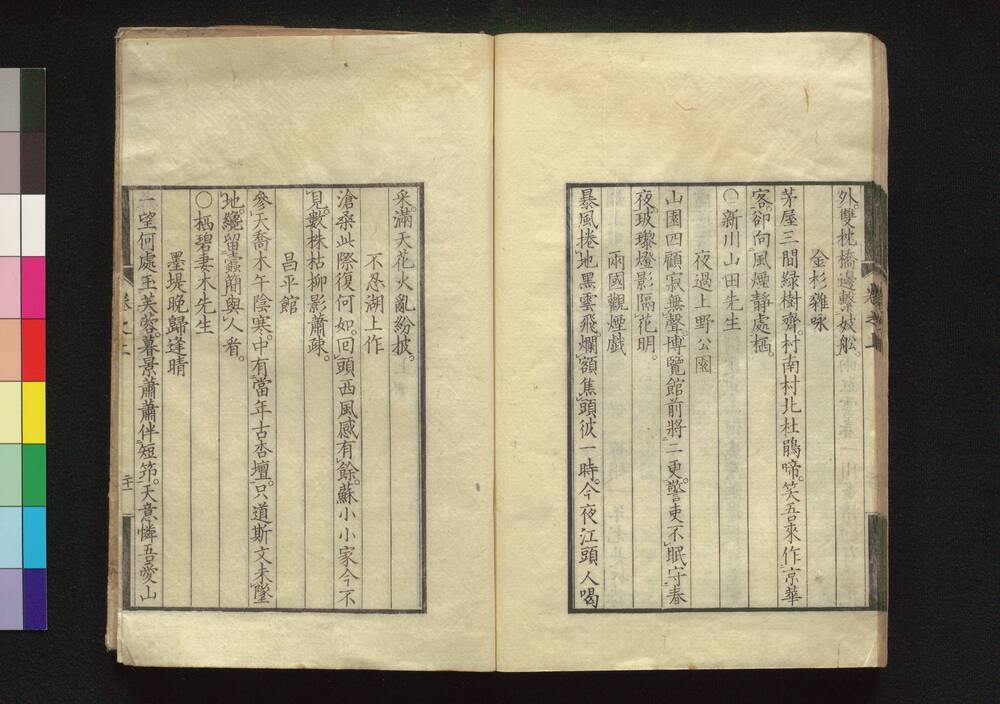 外。雙枕橋邊繫妓舩。
金杉雜咏
茅屋三間綠樹齊。村南村北杜鵑啼。笑吾來作京華
客。卻向風煙靜處栖。
〇新川山田先生
夜過上野公園
山園四顧寂無聲。博覽館前將二更。警吏不眠守春
夜。玻瓈燈影隔花明。
兩國觀煙戲
暴風捲地黑雲飛。爛額焦頭彼一時。今夜江頭人喝
采。滿天花火亂紛披。
不忍湖上作
滄桑此際復何如。回頭西風感有餘。蘇小小家今不
見。數株枯柳影蕭疎。
昌平館
參天喬木午陰寒。中有當年古杏壇。只道斯文未墜
地。纔留蠧簡與人看。
〇栖碧妻木先生
墨堤晚歸逢晴
一望何處玉芙蓉。暮景蕭蕭伴短筇。天意憐吾愛山
卷之上
卷之上
二十一